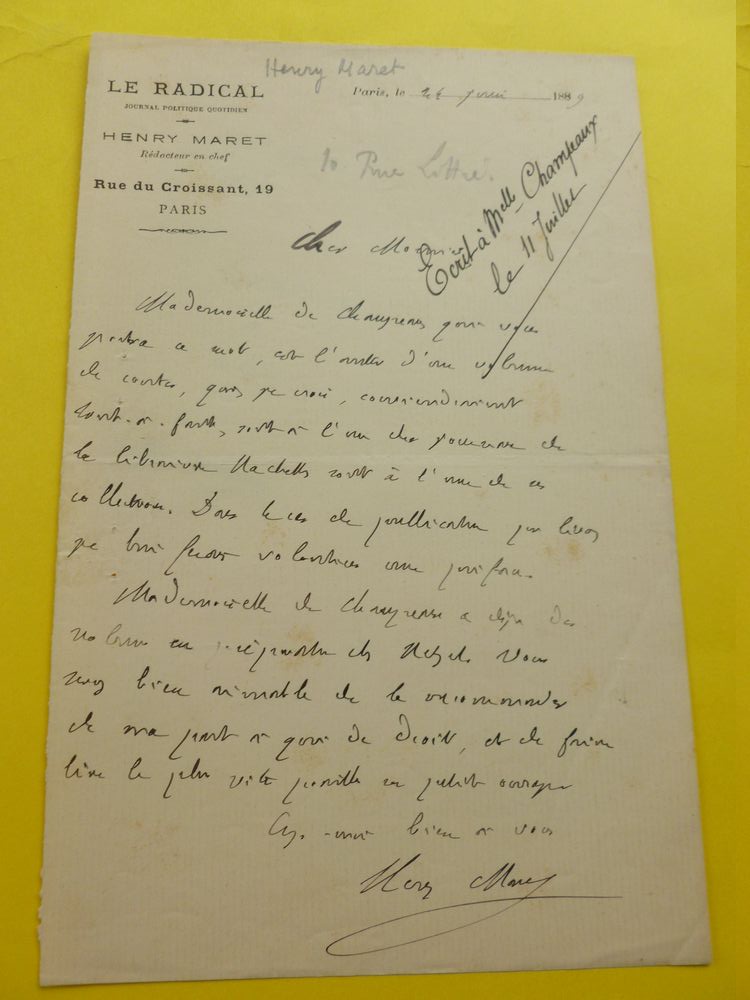 Henry Maret
LE RADICAL
JOURNAL POLITIQUE QUOTIDIEN
HENRY MARET
Rédacteur en chef
Rue du Croissant, 19
PARIS
Paris, le 24 1889
10 Rue Littré.
Ecrit à Melle Champeaux
le 11 Juillet
Cher Monsieur
Mademoiselle de Champeaux qui vous
portera ce mot, est l'auteur d'un volume
de contes, qui, je crois, conviendraient
tout-à-fait, soit à l'un des journaux de
la librairie Hachette soit à l'une de ses
collections. Dans le cas de publication en livre
je lui ferais volontiers une préface.
Mademoiselle de Champeaux a déjà des
volumes en préparation chez Hetzel. Vous
serez bien aimable de la recommander
de ma part à qui de droit, et de faire
lire le plus vite possible son petit ouvrage
bien à vous
Henry Maret